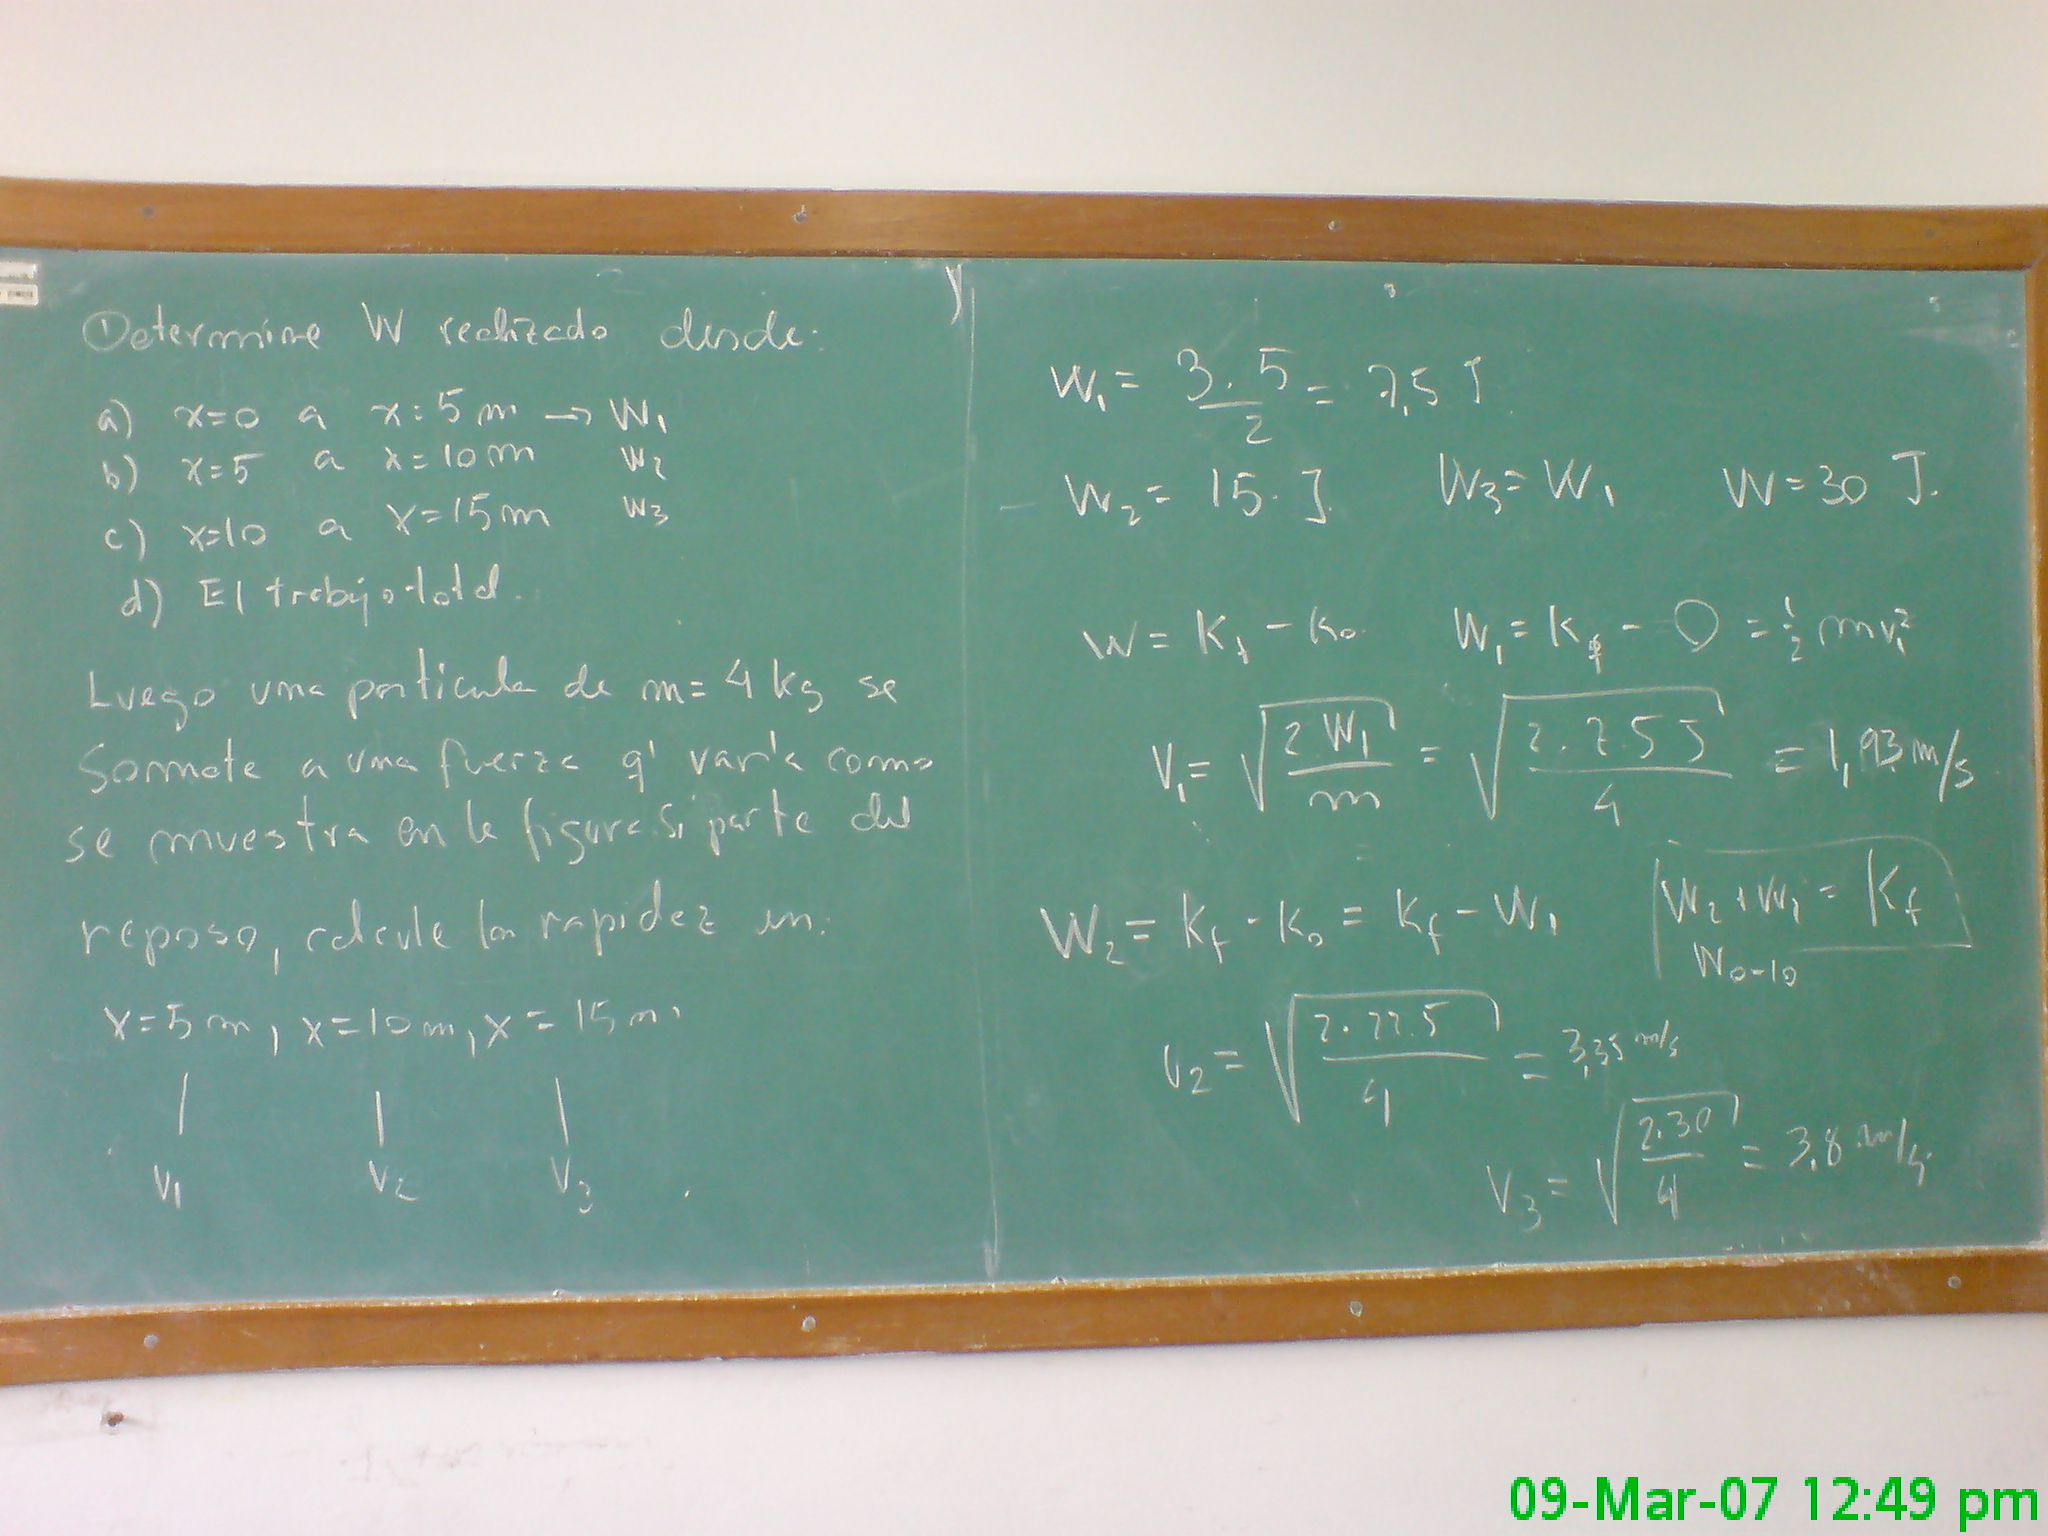 ① Determine W realizado desde:
a) x=0 a x=5m → W₁
b) x=5 a x=10m W₂
c) x=10 a x=15m W₃
d) El trabajo total.
Luego una particula de m=4kg se
Somete a una fuerza q' varía como
se muestra en la figura. Si parte del
reposo, calcule la rapidez en:
x=5m, x=10m, x=15m.
V₁ V₂ V₃
W₁ = 3.5/2 = 7,5 J
W₂ = 15. J. W₃ = W₁ W = 30 J.
W = K_f - K₀ W₁ = K_f - 0 = ½ mv₁²
V₁ = √(2W₁/m) = √(2.7.5J/4) = 1,93 m/s
W₂ = K_f - K₀ = K_f - W₁ W₂ + W₁ = K_f
W₀₋₁₀
V₂ = √(2.22.5/4) = 3,35 m/s
V₃ = √(2.30/4) = 3.8 m/s
09-Mar-07 12:49 pm